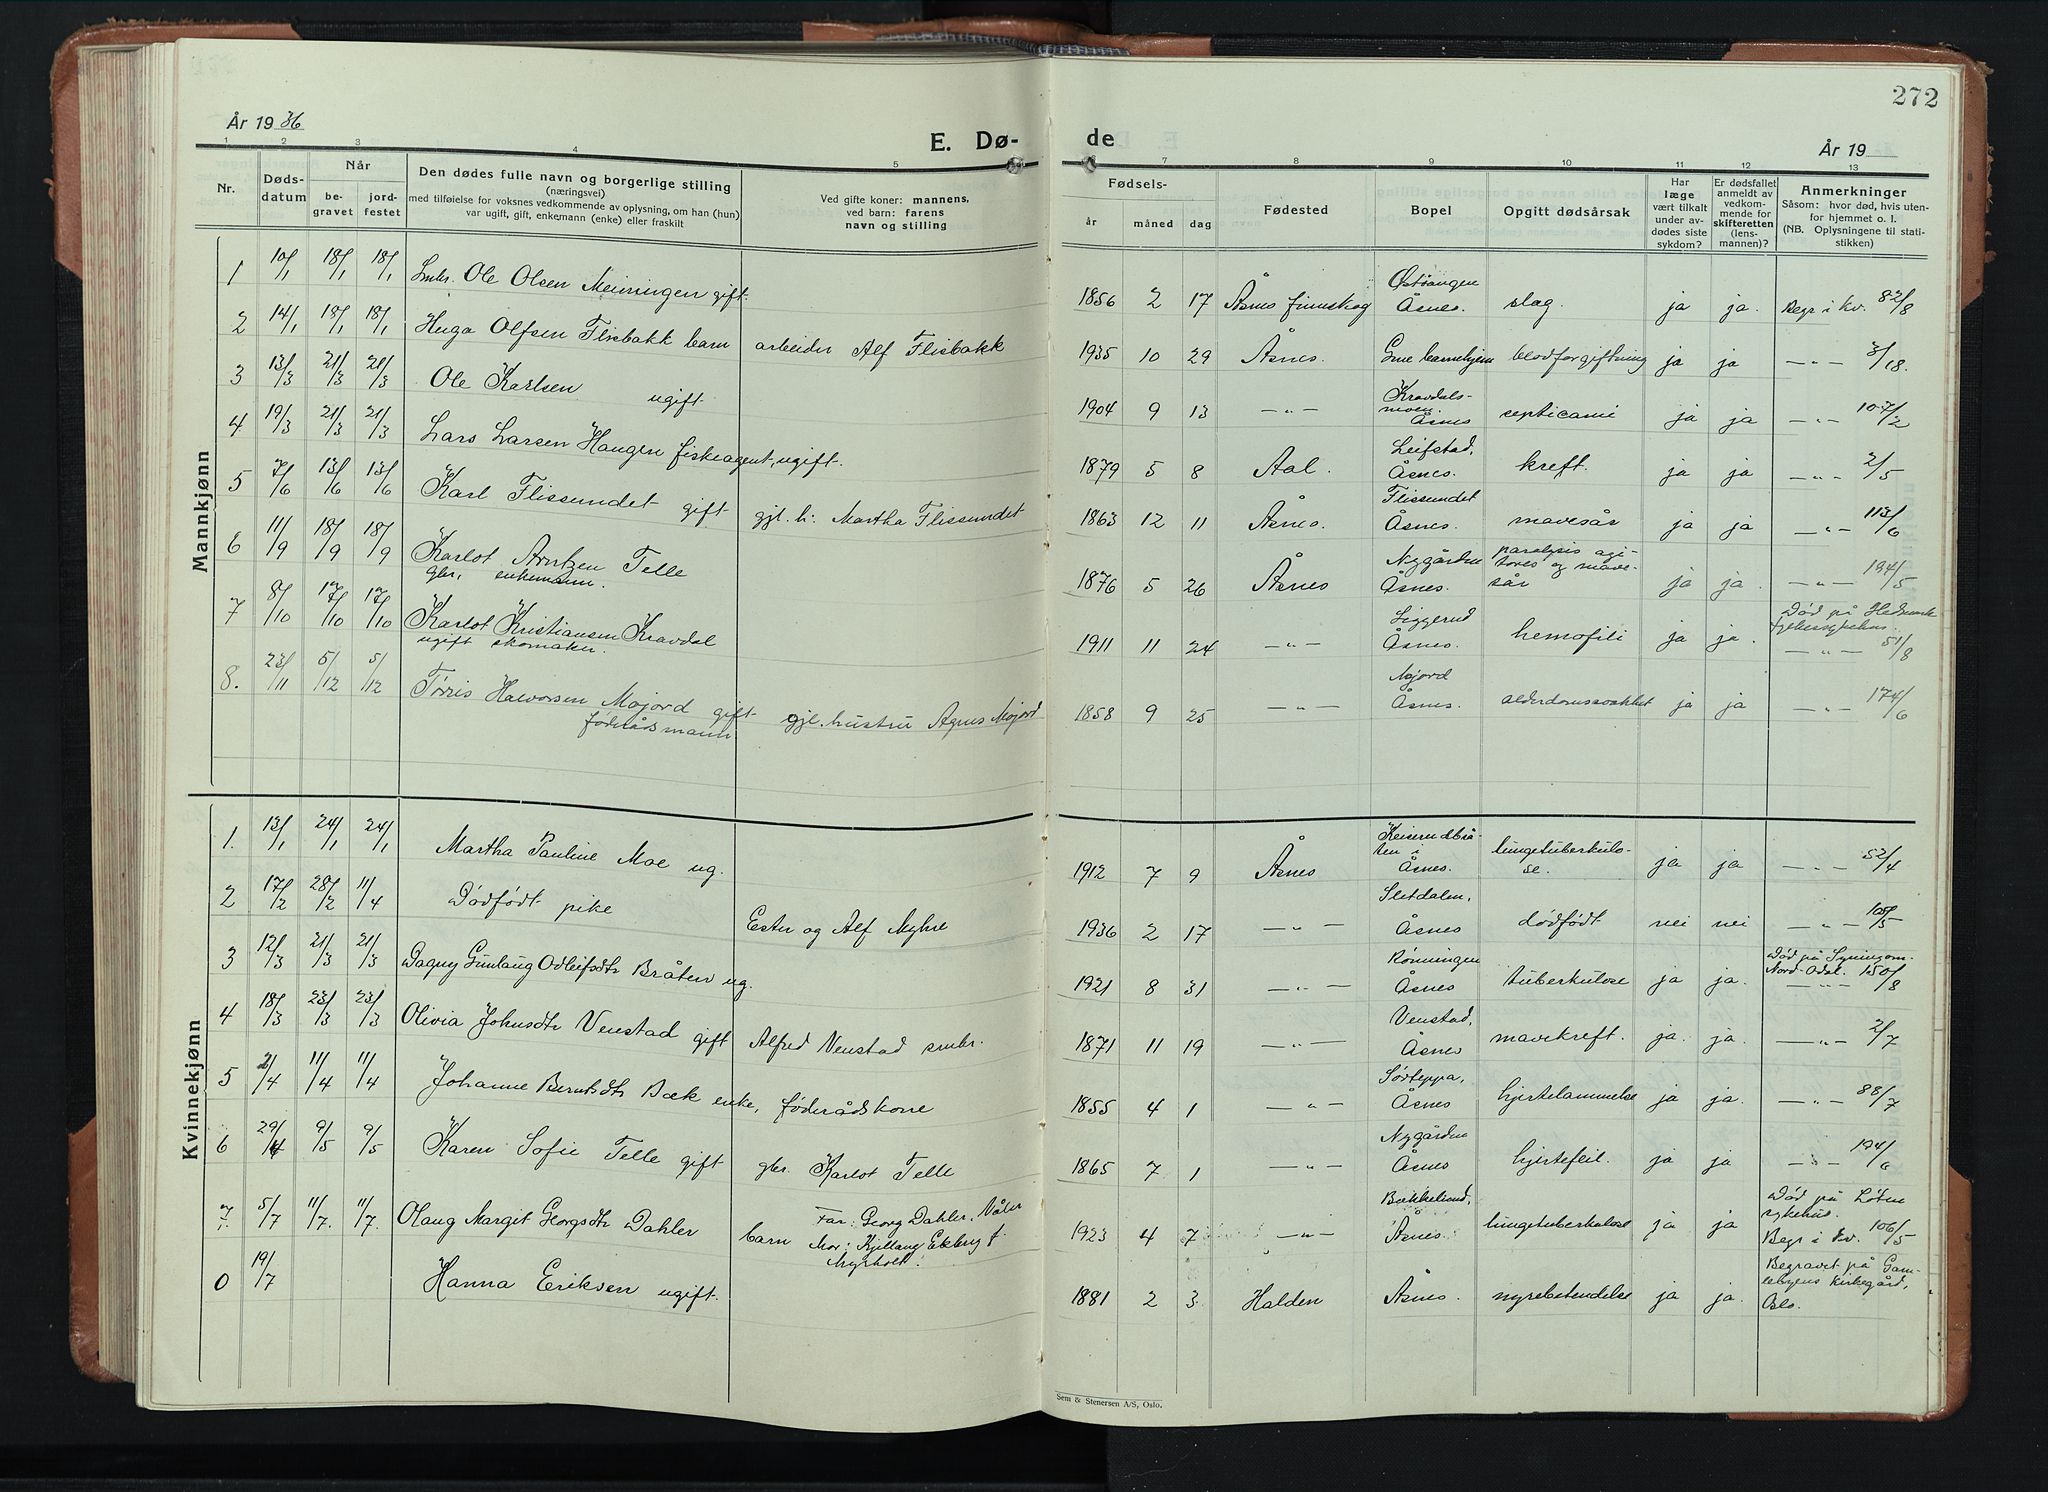 272
År 1936
E. Dø-
de
År 19
1 2 3 4 5
7 8 9 10 11 12 13
Nr.
Døds-
datum
Når
be-
gravet
jord-
festet
Den dødes fulle navn og borgerlige stilling
(næringsvei)
med tilføielse for voksnes vedkommende av oplysning, om han (hun)
var ugift, gift, enkemann (enke) eller fraskilt
Ved gifte koner: mannens,
ved barn: farens
navn og stilling
Fødsels-
år måned dag
Fødested
Bopel
Opgitt dødsårsak
Har
læge
vært tilkalt
under av-
dødes siste
sykdom?
Er dødsfallet
anmeldt av
vedkom-
mende for
skifteretten
(lens-
mannen)?
Anmerkninger
Såsom: hvor død, hvis uten-
for hjemmet o. l.
(NB. Oplysningene til stati-
stikken)
Mannkjønn
1 10/1 18/1 18/1 Smbr. Ole Olsen Meiningen gift. 1856 2 17 Åsnes finnskog Østvangen Åsnes. slag. ja ja. Begr i kv. 82/8
2 14/1 18/1 18/1 Hugo Olfsen Flisbakk barn arbeider Alf Flisbakk 1935 10 29 Åsnes. barnehjem blodforgiftning ja ja —"— 3/18.
3 13/3 21/3 21/3 Ole Karlsen ugift. 1904 9 13 —"— Kravdals-
moen. Åsnes septicæmi ja ja —"— 107/2
4 19/3 21/3 21/3 Lars Larsen Haugen fiskeagent, ugift. 1879 5 8 Aal. Leifstad, Åsnes. kreft. ja ja —"— 2/5
5 7/6 13/6 13/6 Karl Flissundet gift gjl. h: Martha Flissundet 1863 12 11 Åsnes. Flissundet Åsnes. mavesår ja ja —"— 113/6
6 11/9 18/9 18/9 Karlot Arntzen Telle
gbr, enkemann. 1876 5 26 Åsnes Nygården Åsnes. paralysis agi-
tores og mave-
sår ja ja. —"— 194/5
7 8/10 17/10 17/10 Karlot Kristiansen Kravdal
ugift skomaker. 1911 11 24 —"— Liggerud Åsnes. hemofili ja ja. Død på Hedmark
fylkessykehus.
—"— 51/8
8. 23/11 5/12 5/12 Tørris Halvorsen Mojord gift
føderådsmann gjl. hustru Agnes Mojord 1858 9 25 —"— Mojord Åsnes. alderdomssvakhet ja ja —"— 174/6
Kvinnekjønn
1. 13/1 24/1 24/1 Martha Pauline Moe ug. 1912 7 9 Åsnes Keiserudbrå-
ten i Åsnes. lungetuberkulo-
se. ja ja —"— 52/4
2 17/2 28/2 11/4 Dødfødt pike Ester og Alf Myhre 1936 2 17 —"— Sletdalen, Åsnes dødfødt nei nei —"— 105/5
3 12/3 21/3 21/3 Dagny Gunlaug Odleifsdtr Bråten ug. 1921 8 31 —"— Rønningen Åsnes tuberkulose ja ja. Død på
Nord-Odal. 150/8
—"—
4 18/3 23/3 23/3 Olivia Johnsdtr Venstad gift Alfred Venstad smbr. 1871 11 19 —"— Venstad, Åsnes mavekreft. ja. ja. —"— 2/7
5 2/4 11/4 11/4 Johanne Berntsdtr Bæk enke, føderådskone 1855 4 1 —"— Sørteppa, Åsnes hjertelammelse ja ja. —"— 88/7
6 29/4 9/5 9/5 Karen Sofie Telle gift gbr. Karlot Telle 1865 7 1 —"— Nygården Åsnes hjertefeil. ja ja —"— 194/6
7. 5/7 11/7. 11/7. Olaug Margit Georgsdtr Dahler barn Far: Georg Dahler, Våler
Mor: Kjellaug Ekberg f.
Myrholt. 1923 4 7 —"— Bækkelund, Åsnes. lungetuberkulose ja ja Død på Løten
sykehus.
Begr i kv. 106/5
0 19/7 Hanna Eriksen ugift. 1881 2 3. Halden Åsnes. nyrebetendelse ja ja. Begravet på Gam-
lebyens kirkegård,
Oslo.
Sem & Stenersen A/S, Oslo.